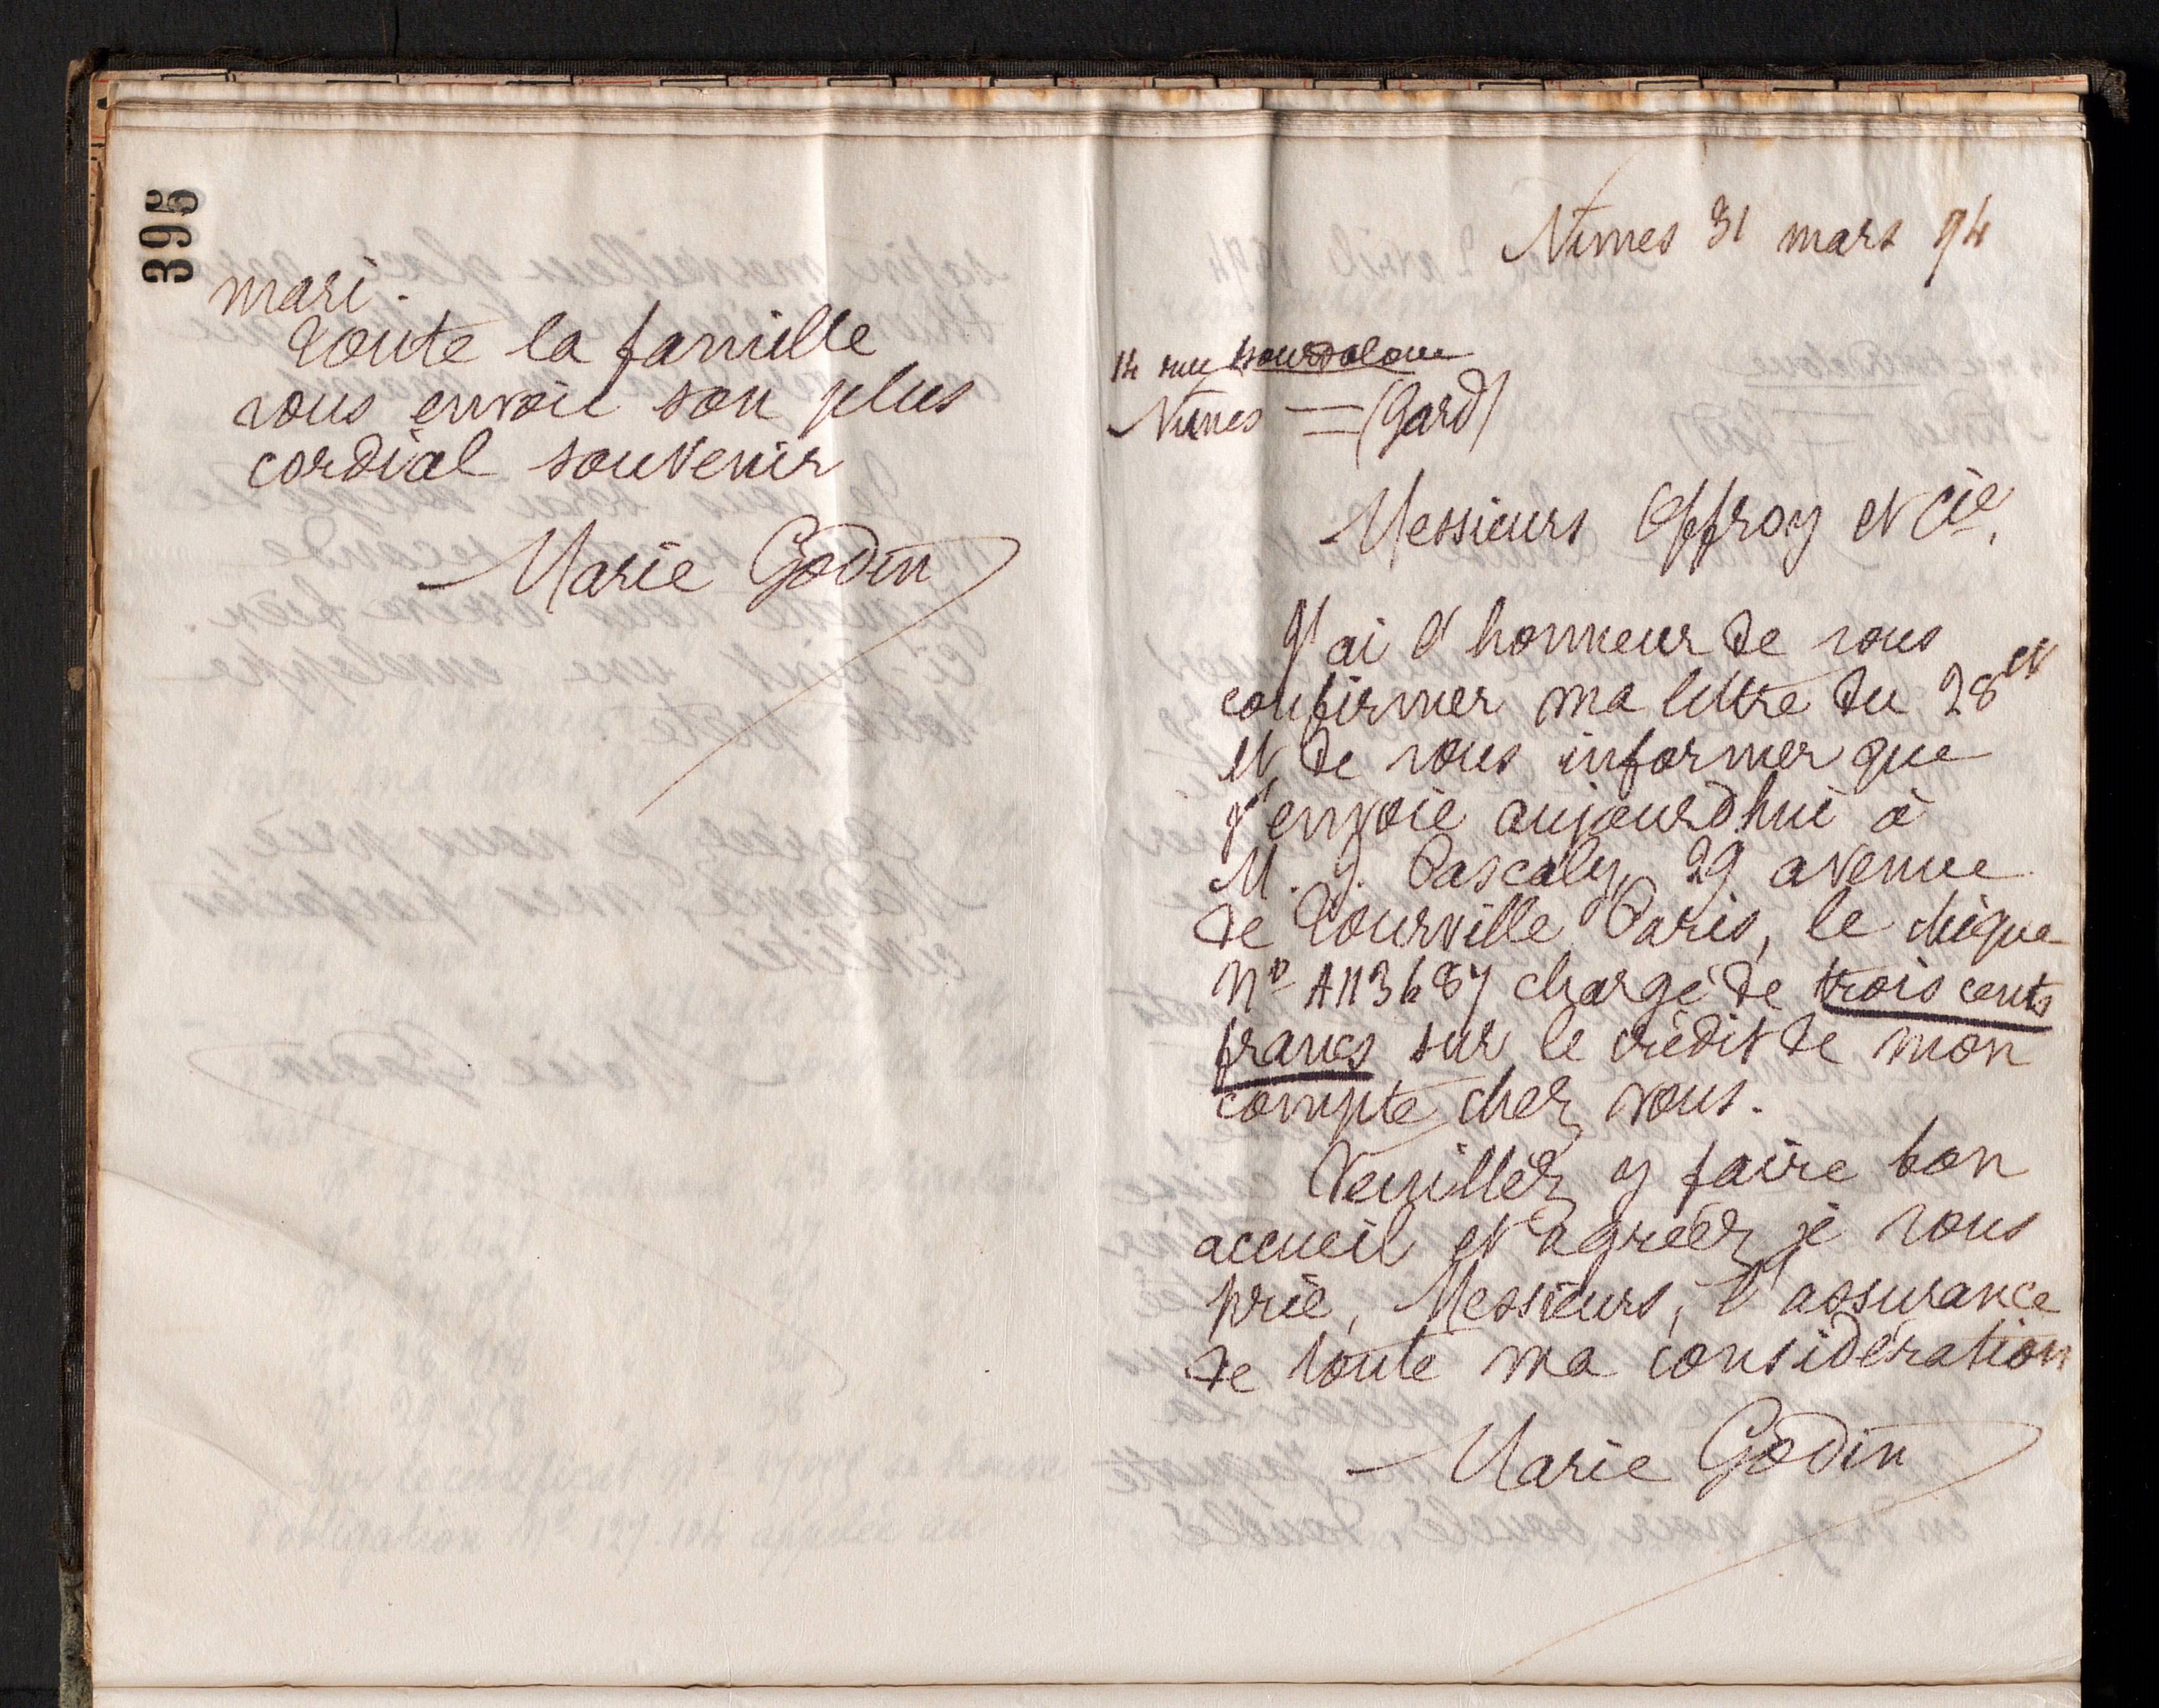 395
mari.
Toute la famille
vous envoie son plus
cordial souvenir
Marie Godin
Nimes 31 mars 94
14 rue Bourdaloue
Nimes = (Gard)
Messieurs Offroy et Cie.
J'ai l'honneur de vous
confirmer ma lettre du 28 ct
et de vous informer que
j'envoie aujourd'hui à
M. J. Pascaly, 29 avenue
de Tourville Paris, le chèque
chargé de trois cents
francs sur le crédit de mon
compte chez vous.
Veuillez y faire bon
accueil et agréer, je vous
prie, Messieurs, l'assurance
de toute ma considération
Marie Godin